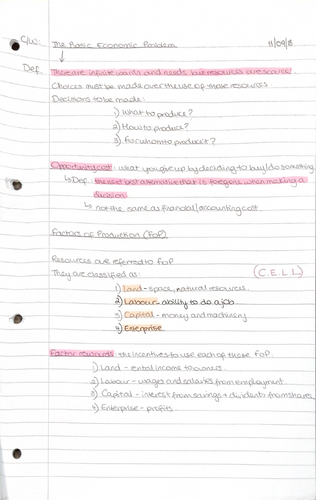 C/W: The Basic Economic Problem 11/09/18
Def. There are infinite wants and needs but resources are scarce.
Choices must be made over the use of these resources
Decisions to be made:
1) What to produce?
2) How to produce?
3) For whom to produce it?
Opportunity cost: what you give up by deciding to buy/do something
↳ Def. the next best alternative that is foregone when making a
decision
↳ not the same as financial/accounting cost.
Factors of Production (FoP)
Resources are referred to FoP
They are classified as: (C.E.L.L)
1) Land - space, natural resources.
2) Labour - ability to do a job
3) Capital - money and machinery
4) Enterprise
Factor rewards: the incentives to use each of these FoP.
1) Land - rental income to owners.
2) Labour - wages and salaries from employment
3) Capital - interest from savings + dividents from shares
4) Enterprise - profits.